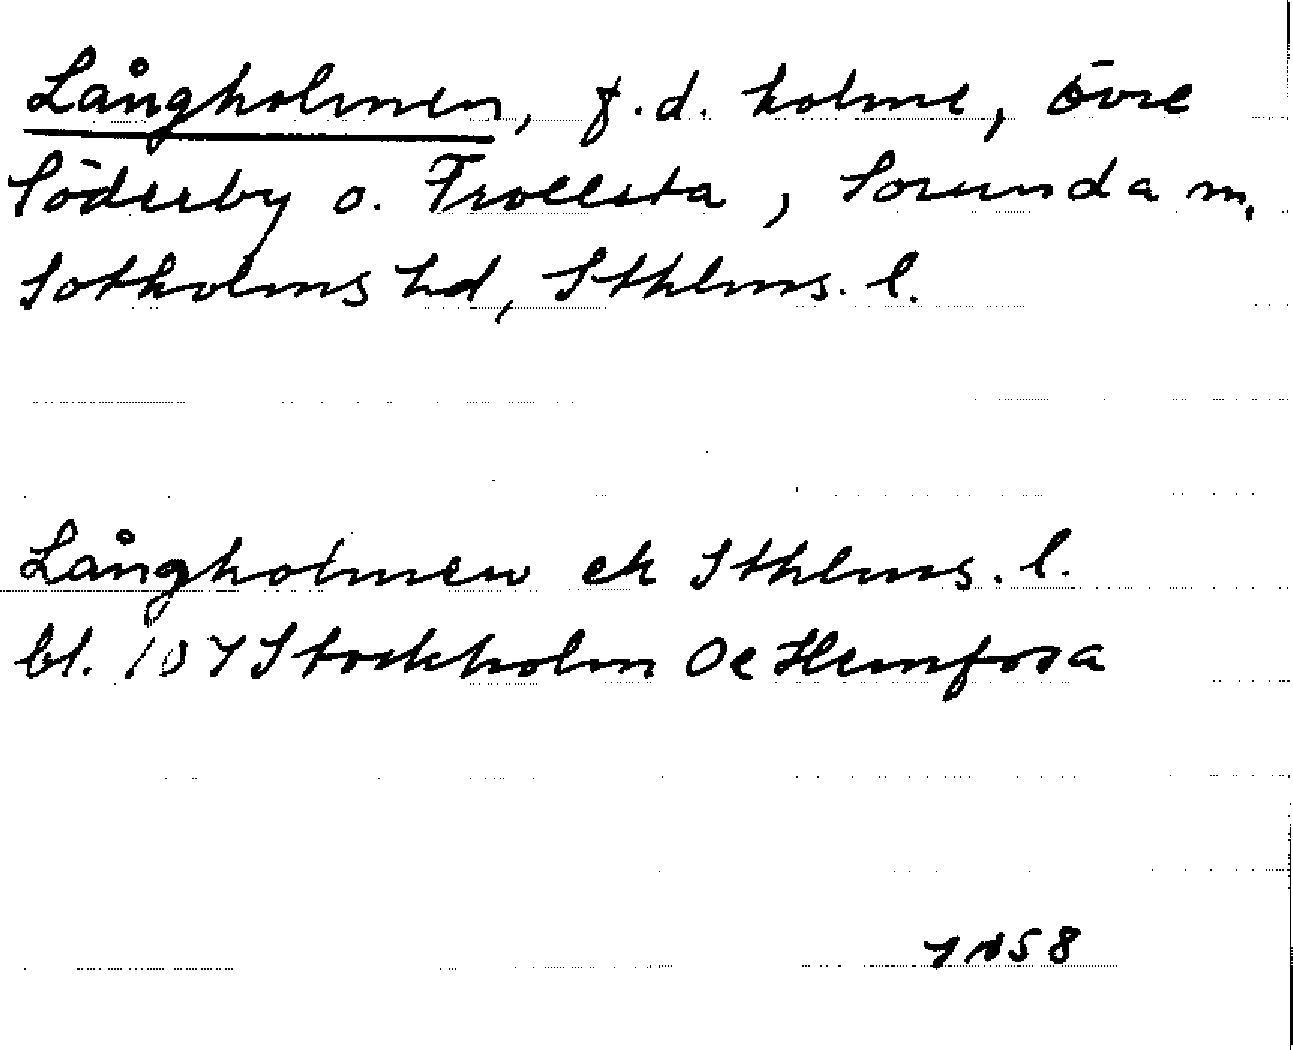 Långholmen, f.d. holme, Övre
Söderby o. Trollsta, Sorunda sn,
Sotholms hd, Sthlms. l.
Långholmen ek Sthlms. l.
bl. 107 Stockholm Oe Hemfosa
1958